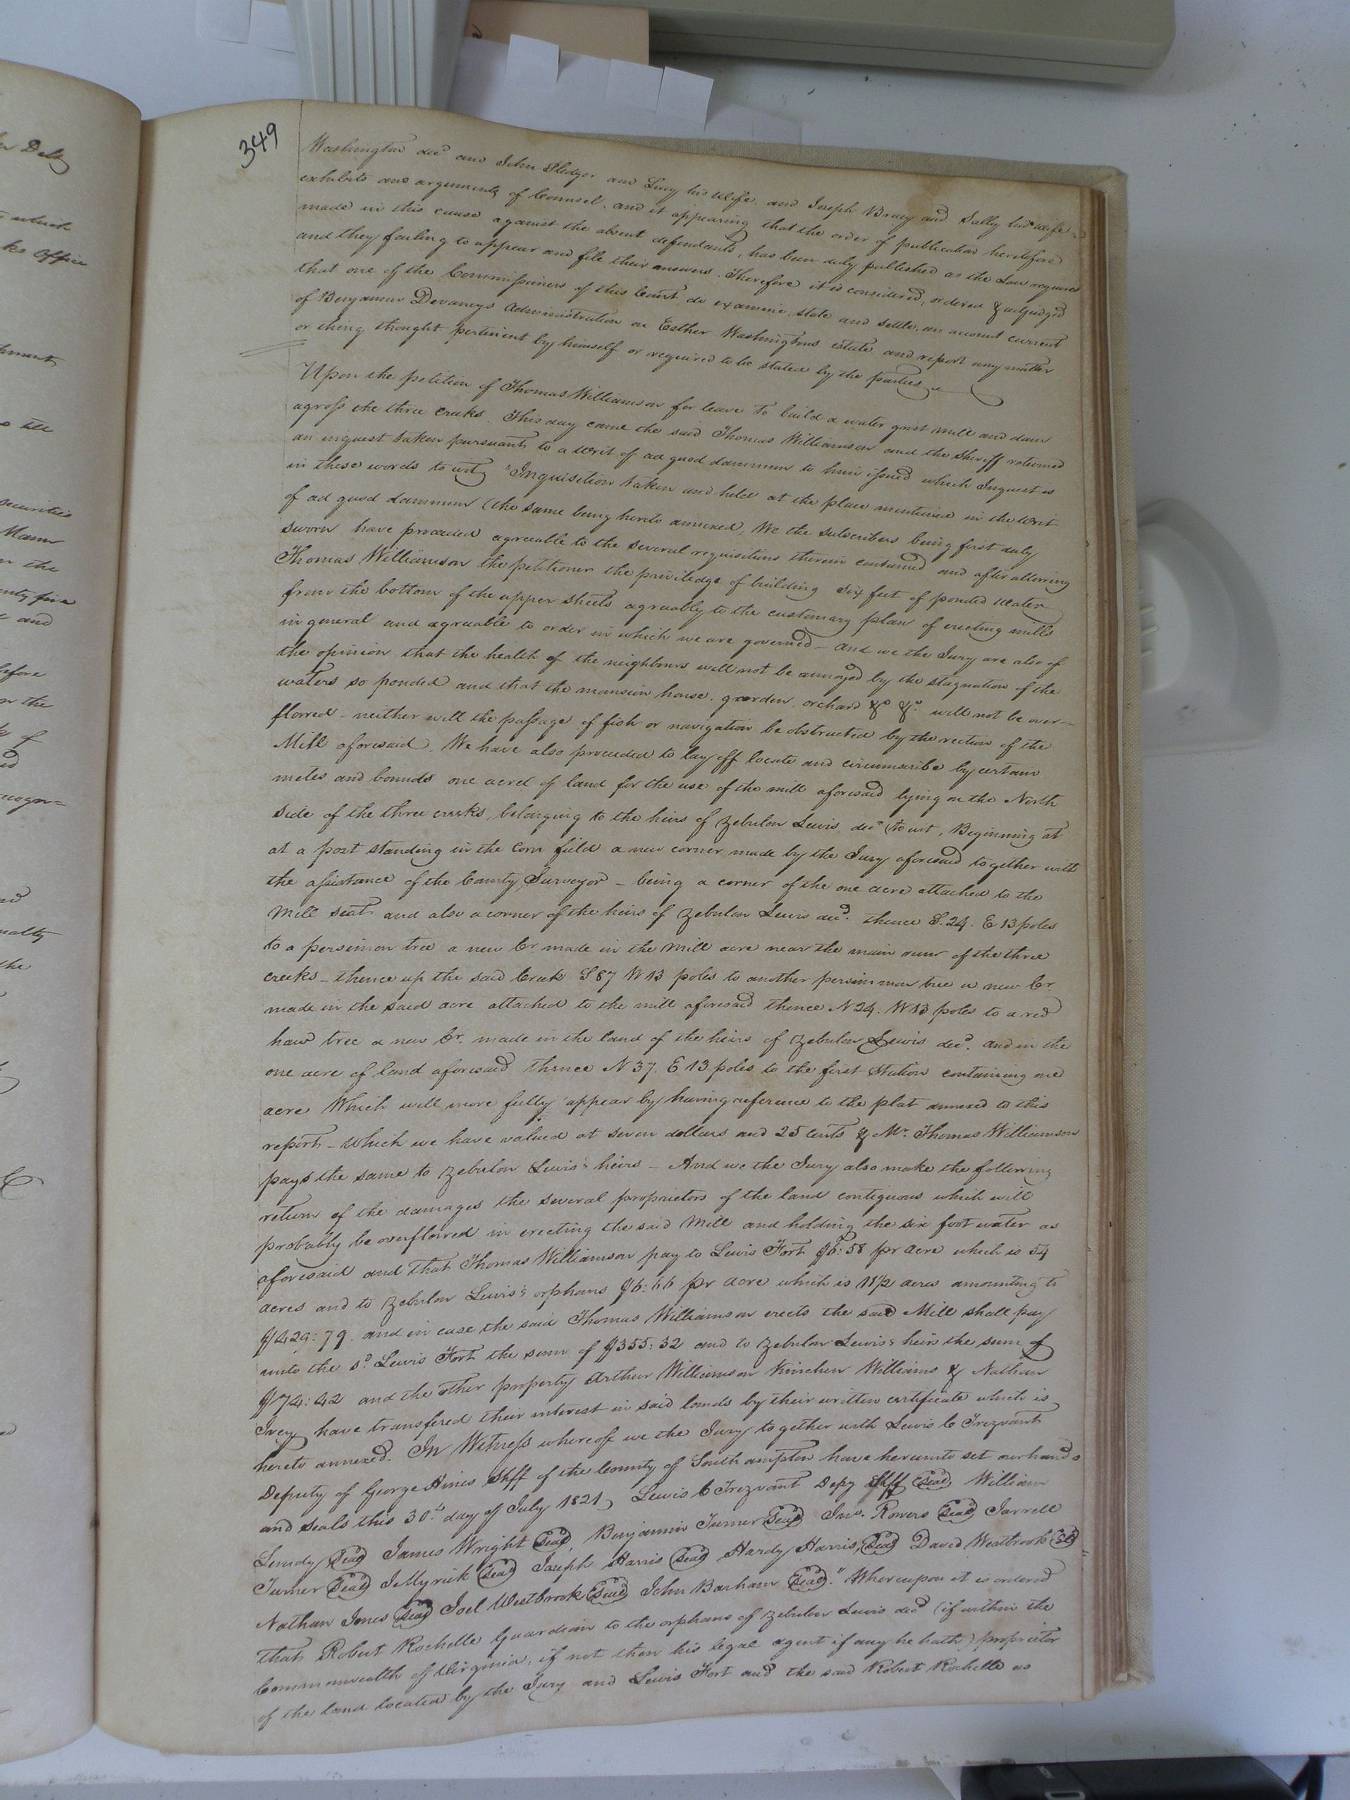 349
Washington decd and John Pledger and Lucy his wife, and Joseph Bracy and Sally his wife
exhibits and arguments of Counsel, and it appearing that the order of publication heretofore
made in this cause against the absent defendants, has been duly published as the Law requires
and they failing to appear and file their answers. Therefore it is considered, ordered & adjudged
that one of the Commissioners of this Court do examine, state and settle, an account current
of Benjamin Devany's Administration on Esther Washingtons estate and report any matter
or thing thought pertinent by himself or required to be stated by the parties
Upon the petition of Thomas Williamson for leave to build a water grist mill and dam
across the three creeks. This day came the said Thomas Williamson and the Sheriff returned
an inquest taken pursuant to a writ of ad quod damnum to him issued which Inquest is
in these words to wit, "Inquisition taken and held at the place mentioned in the writ
of ad quod damnum (the same being hereto annexed, We the subscribers being first duly
sworn have proceeded agreeable to the several requisitions therein contained and after allowing
Thomas Williamson the petitioner the priviledge of building six feet of ponded water
from the bottom of the upper sheets agreeably to the customary plan of erecting mills
in general and agreeable to order in which we are governed – And we the Jury are also of
the opinion that the health of the neighbours will not be annoyed by the stagnation of the
waters so ponded and that the mansion house, garden, orchard &c &c. will not be over-
flowed – neither will the passage of fish or navigation be obstructed by the rection of the
Mill aforesaid. We have also proceeded to lay off locate and circumscribe by certain
metes and bounds one acred of land for the use of the mill aforesaid lying on the North
side of the three creeks, belonging to the heirs of Zebulon Lewis decd (to wit, Beginning at
at a post standing in the corn field a new corner made by the Jury aforesaid together with
the assistance of the County Surveyor – being a corner of the one acre attached to the
Mill seat and also a corner of the heirs of Zebulon Lewis decd. thence S. 24. E 13 poles
to a persimon tree a new Cr made in the mill acre near the main run of the three
creeks – thence up the said Creek S 87 W 13 poles to another persimmon tree a new Cr
made in the said acre attached to the mill aforesaid thence N 24. W 13 poles to a red
haw tree a new Cr. made in the land of the heirs of Zebulon Lewis decd. and in the
one acre of land aforesaid thence N 37. E 13 poles to the first Station containing one
acre Which will more fully appear by having reference to the plat annexed to this
report – Which we have valued at seven dollars and 25 cents & Mr. Thomas Williamson
pays the same to Zebulon Lewis's heirs – And we the Jury also make the following
return of the damages the several proprietors of the land contiguous which will
probably be overflowed in erecting the said Mill and holding the six foot water as
aforesaid and that Thomas Williamson pay to Lewis Fort $6:58 pr acre which is 54
acres and to Zebulon Lewis's orphans $6:66 pr acre which is 11½ acres amounting to
$429:79. and in case the said Thomas Williamson erects the said Mill shall pay
unto the sd. Lewis Fort the sum of $355:32 and to Zebulon Lewis's heirs the sum of
$74:42 and the other property Arthur Williamson Kinchen Williams & Nathan
Ivey have transfered their interest in said lands by their written certificate which is
hereto annexed. In Witness whereof we the Jury together with Lewis C Trezvant
Deputy of George Hines Shff of the County of Southampton have hereunto set our hands
and seals this 30th day of July 1821, Lewis C Trezvant Depy Shff Seal William
Lundy Seal James Wright Seal, Benjamin Turner Seal Jno. Rowers Seal Jarrell
Turner Seal J Myrick Seal Joseph Harris Seal Hardy Harris, Seal David Westbrook Sl
Nathan Jones Seal Joel Westbrook Seal John Barham Seal." Whereupon it is ordered
that Robert Rochelle Guardian to the orphans of Zebulon Lewis decd (if within the
Commonwealth of Virginia, if not then his legal agent if any he hath) proprietor
of the land located by the Jury and Lewis Fort and the said Robert Rochelle as